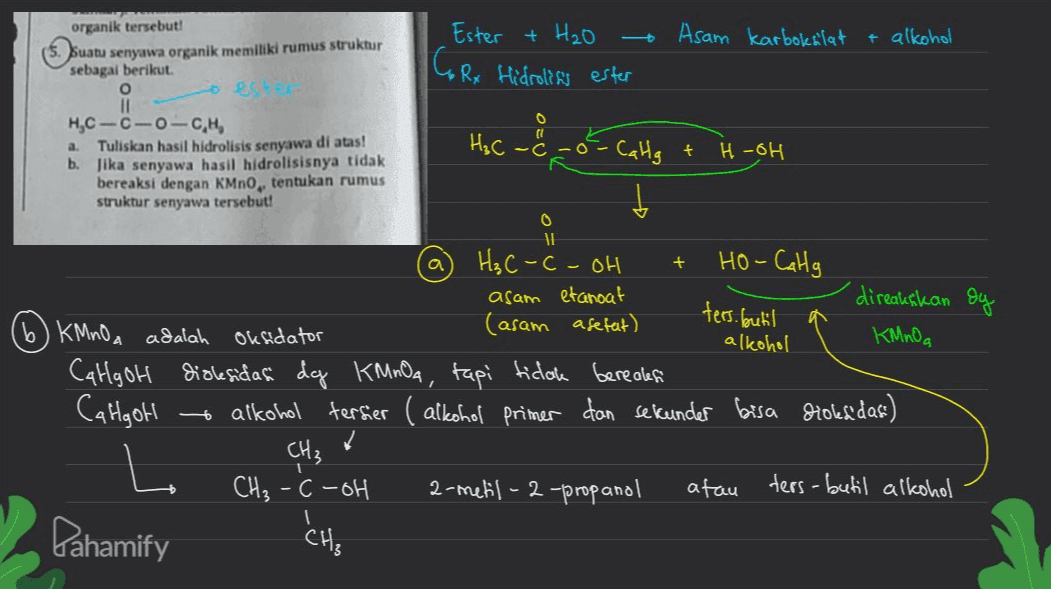 organik tersebut!
5. Suatu senyawa organik memiliki rumus struktur
sebagai berikut.
ester
O
||
H₃C — C — O — C₄H₉
a. Tuliskan hasil hidrolisis senyawa di atas!
b. Jika senyawa hasil hidrolisisnya tidak
bereaksi dengan KMnO₄, tentukan rumus
struktur senyawa tersebut!
Ester + H₂O → Asam karboksilat + alkohol
Rx Hidrolisis ester
O
||
H₃C - C - O - C₄H₉ + H - OH
↓
O
||
a H₃C - C - OH + HO - C₄H₉
asam etanoat
(asam asetat)
ters. butil
alkohol
direaksikan dg
KMnO₄
b KMnO₄ adalah oksidator
C₄H₉OH dioksidasi dg KMnO₄, tapi tidak bereaksi
C₄H₉OH → alkohol tersier (alkohol primer dan sekunder bisa dioksidasi)
CH₃
|
CH₃ - C - OH 2-metil-2-propanol atau ters-butil alkohol
|
CH₃
Pahamify